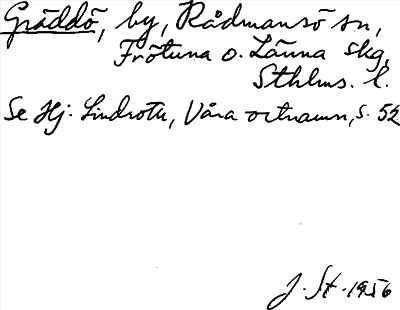 Gräddö, by, Rådmansö sn,
Frötuna o. Länna skg,
Sthlms. l.
Se Hj. Lindroth, Våra ortnamn, s. 52
J. St. 1956